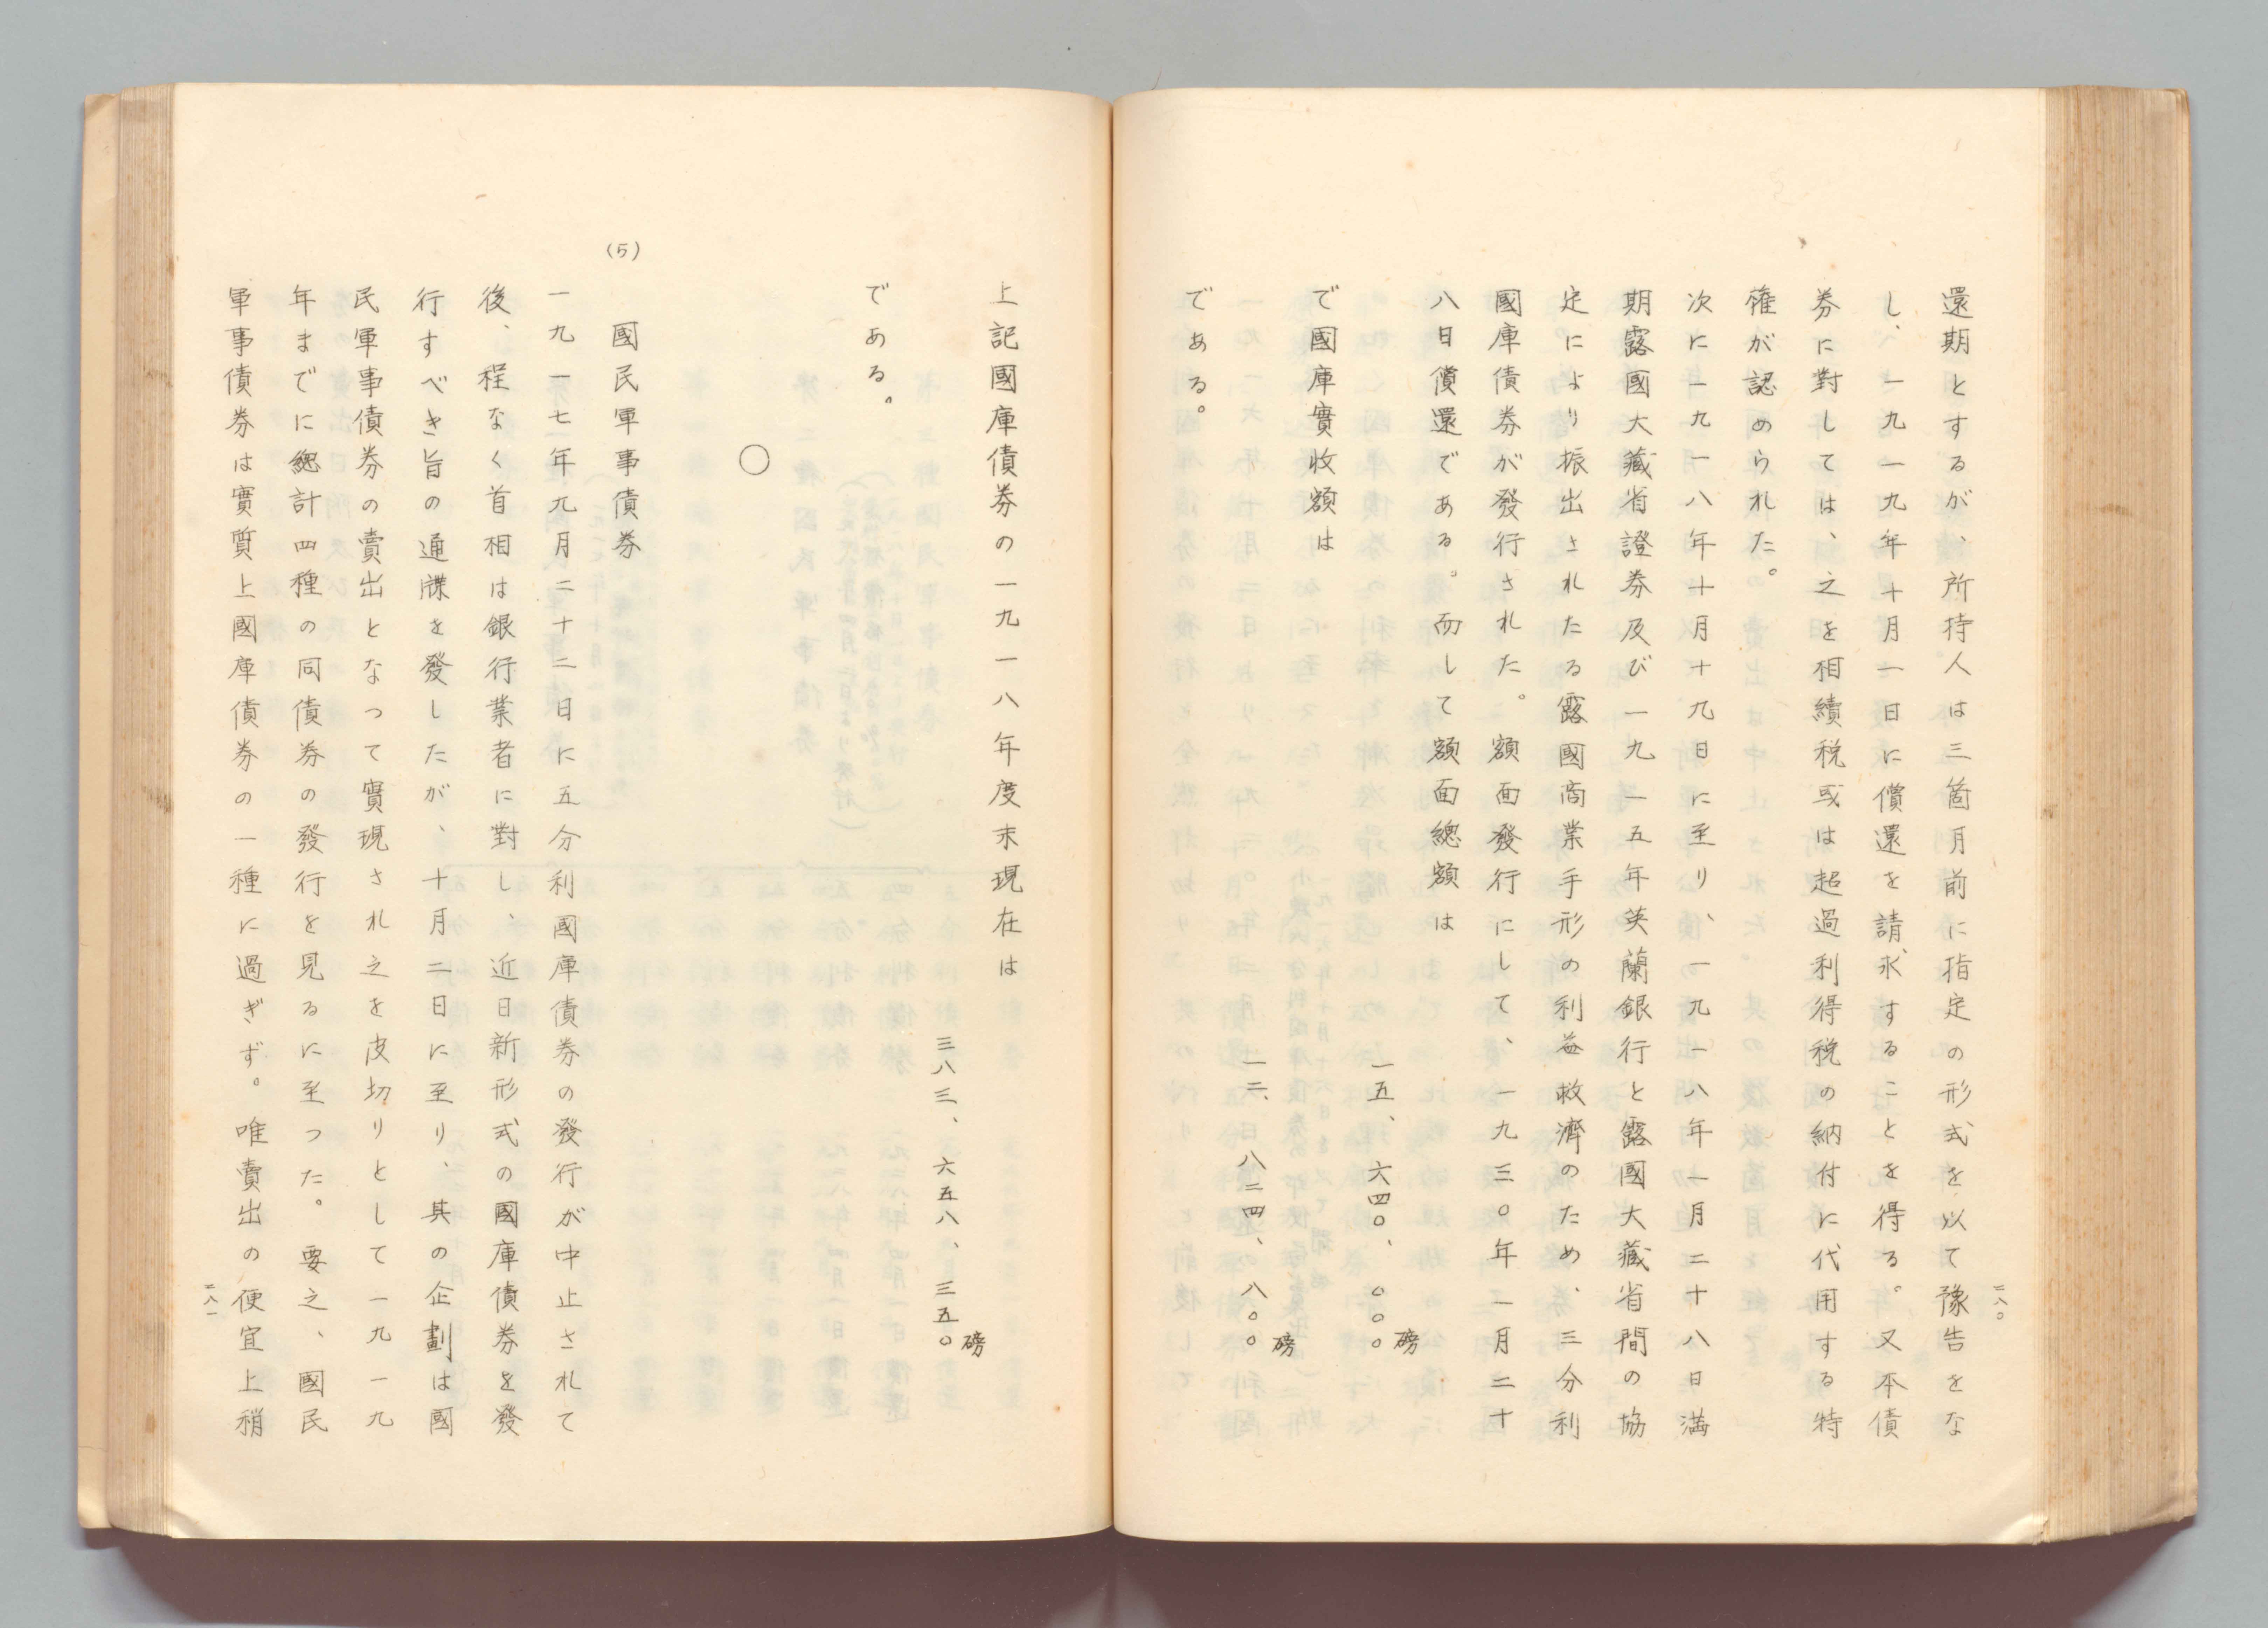 還期とするが、所持人は三箇月前に指定の形式を以て豫告をな
し、一九一九年十月一日に償還を請求することを得る。又本債
券に對しては、之を相續税或は超過利得税の納付に代用する特
權が認められた。
次に一九一八年十月十九日に至り、一九一八年一月二十八日満
期露國大藏省證券及び一九一五年英蘭銀行と露國大藏省間の協
定により振出されたる露國商業手形の利益救濟のため、三分利
國庫債券が發行された。額面發行にして、一九三〇年一月二十
八日償還である。而して額面總額は
一五、六四〇、〇〇〇磅
で國庫實收額は
一二、八二四、八〇〇磅
である。
二八〇
上記國庫債券の一九一八年度末現在は
三八三、六五八、三五〇磅
である。
○
(5) 國民軍事債券
一九一七年九月二十二日に五分利國庫債券の發行が中止されて
後、程なく首相は銀行業者に對し、近日新形式の國庫債券を發
行すべき旨の通牒を發したが、十月二日に至り、其の企劃は國
民軍事債券の賣出となつて實現され之を皮切りとして一九一九
年までに總計四種の同債券の發行を見るに至つた。要之、國民
軍事債券は實質上國庫債券の一種に過ぎず。唯賣出の便宜上稍
二八一